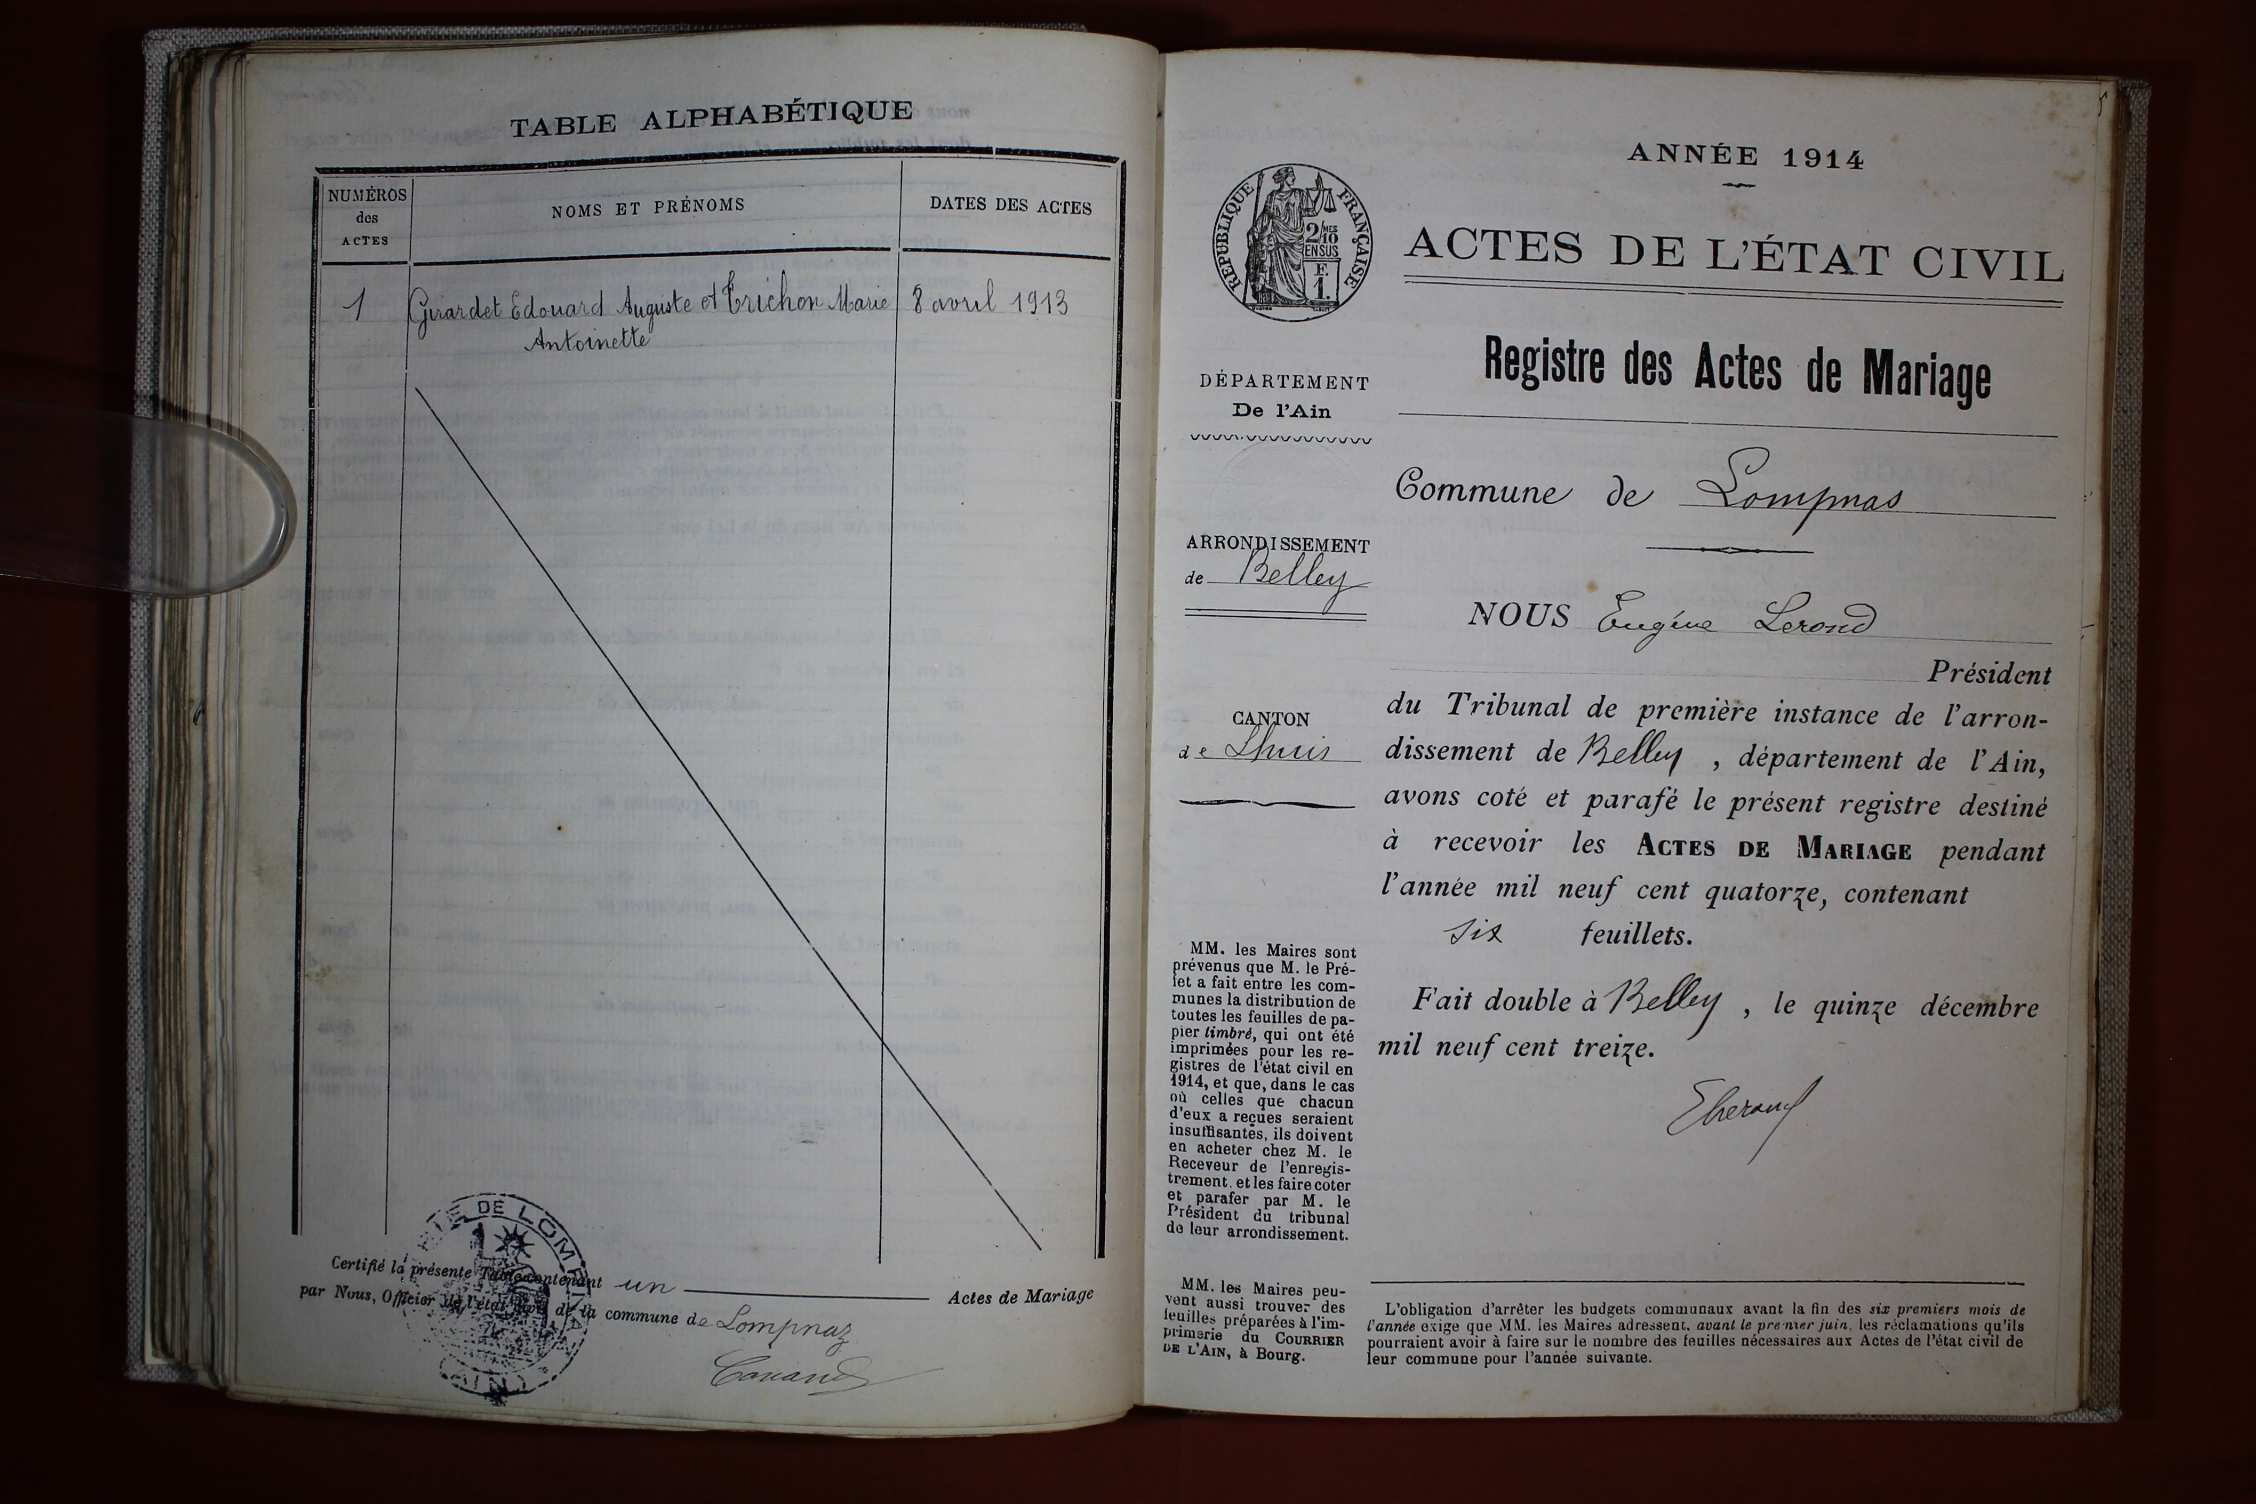 TABLE ALPHABÉTIQUE
NUMÉROS
des
ACTES
NOMS ET PRÉNOMS
DATES DES ACTES
1 Girardet Edouard Auguste et Trichon Marie 8 avril 1913
Antoinette
DE LOMPNAZ
AIN
Certifié la présente Table contenant un Actes de Mariage
par Nous, Officier de l'état civil de la commune de Lompnaz
5
ANNÉE 1914
RÉPUBLIQUE FRANÇAISE
2/10MES
EN SUS
F.
1.
ACTES DE L'ÉTAT CIVIL
Registre des Actes de Mariage
DÉPARTEMENT
De l'Ain
Commune de Lompnas
ARRONDISSEMENT
de Belley
NOUS Eugène Lerond
Président
CANTON
de Lhuis
du Tribunal de première instance de l'arron-
dissement de Belley, département de l'Ain,
avons coté et parafé le présent registre destiné
à recevoir les ACTES DE MARIAGE pendant
l'année mil neuf cent quatorze, contenant
six feuillets.
Fait double à Belley, le quinze décembre
mil neuf cent treize.
MM. les Maires sont
prévenus que M. le Pré-
fet a fait entre les com-
munes la distribution de
toutes les feuilles de pa-
pier timbré, qui ont été
imprimées pour les re-
gistres de l'état civil en
1914, et que, dans le cas
où celles que chacun
d'eux a reçues seraient
insuffisantes, ils doivent
en acheter chez M. le
Receveur de l'enregis-
trement, et les faire coter
et parafer par M. le
Président du tribunal
de leur arrondissement.
MM. les Maires peu-
vent aussi trouver des
feuilles préparées à l'im-
primerie du COURRIER
DE L'AIN, à Bourg.
L'obligation d'arrêter les budgets communaux avant la fin des six premiers mois de
l'année exige que MM. les Maires adressent, avant le premier juin, les réclamations qu'ils
pourraient avoir à faire sur le nombre des feuilles nécessaires aux Actes de l'état civil de
leur commune pour l'année suivante.